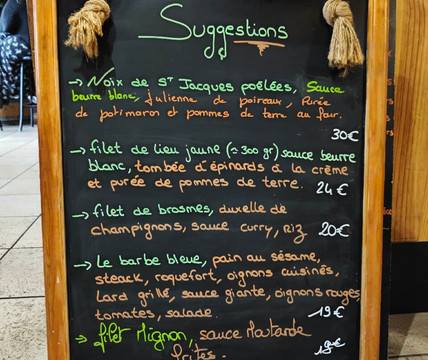 Suggestions
→ Noix de St Jacques poêlées, Sauce
beurre blanc, julienne de poireaux, Purée
de potimaron et pommes de terre au four.
30€
→ filet de lieu jaune (≃300 gr) sauce beurre
blanc, tombée d'épinards à la crème
et purée de pommes de terre. 24€
→ filet de brosmes, duxelle de
champignons, sauce curry, riz 20€
→ Le barbe bleue, pain au sésame,
steack, roquefort, oignons cuisinés,
Lard grillé, sauce giante, oignons rouges
tomates, salade. 19€
→ filet Mignon, sauce Moutarde
frites.